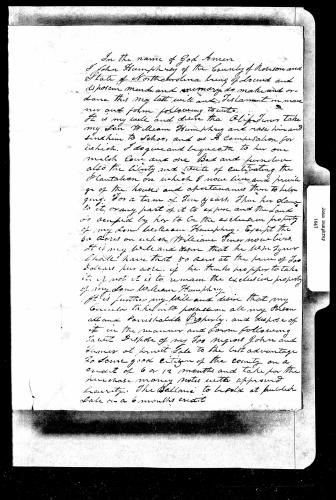 In the name of God Amen
I John Humphrey of the County of Robeson and
State of North Carolina being of Sound and
disposin mind and memory do make and or-
dain this my last will and Testament in man
ner and form following To wit
It is my will and desire the Olif Fines take
my Son William Humphrey and raise him and
Send him to School, and as A Compensation for
which I do give and bequeath to her one
milch Cow and one Bed and furniture
also the liberty of Cultivating the
Plantation on which I now live and privile
ge of the houses and apertanances there to belon
ging. For a term of ten years. Then her claim
to it or any part of it to expire and the land
so ocupied by her to be the exclusive property
of my Son William Humphrey. Except the
60 acres on which William lives now
It is my will and desire that the
have that 60 acres at the price of Two
Dolars per acre if he thinks propper to take
it if not it is to remain the exclusive property
of my Son William Humphrey
It is further my Will and desire that my
Executor take into possession all my Person
al and Parishable Property. and dispose of
it in the manner and form following
To wit Dispose of my Two negroes John and
James at privit Sale to the best advantage
to Some good citizen of the county on a
credit of 6 or 12 months and take for the
purchase money note with approved
Security. The Ballance to be sold at publick
Sale on a 6 months credit